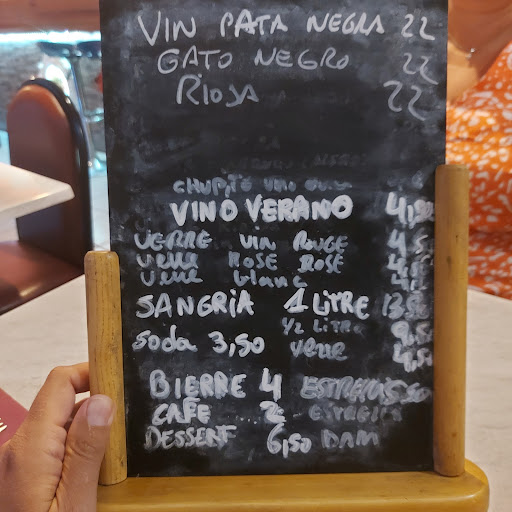 VIN PATA NEGRA 22
GATO NEGRO 22
RIOJA 22
CHUPITO VINO
VINO VERANO
VERRE VIN ROUGE 4,5
VERRE ROSE ROSÉ
VERRE blanc
SANGRIA 1 LITRE 13,50
1/2 LITRE 9,50
soda 3,50 VERRE 4,50
BIERRE 4 ESTRELLA
CAFE 2€
DESSERT 6,50 DAM